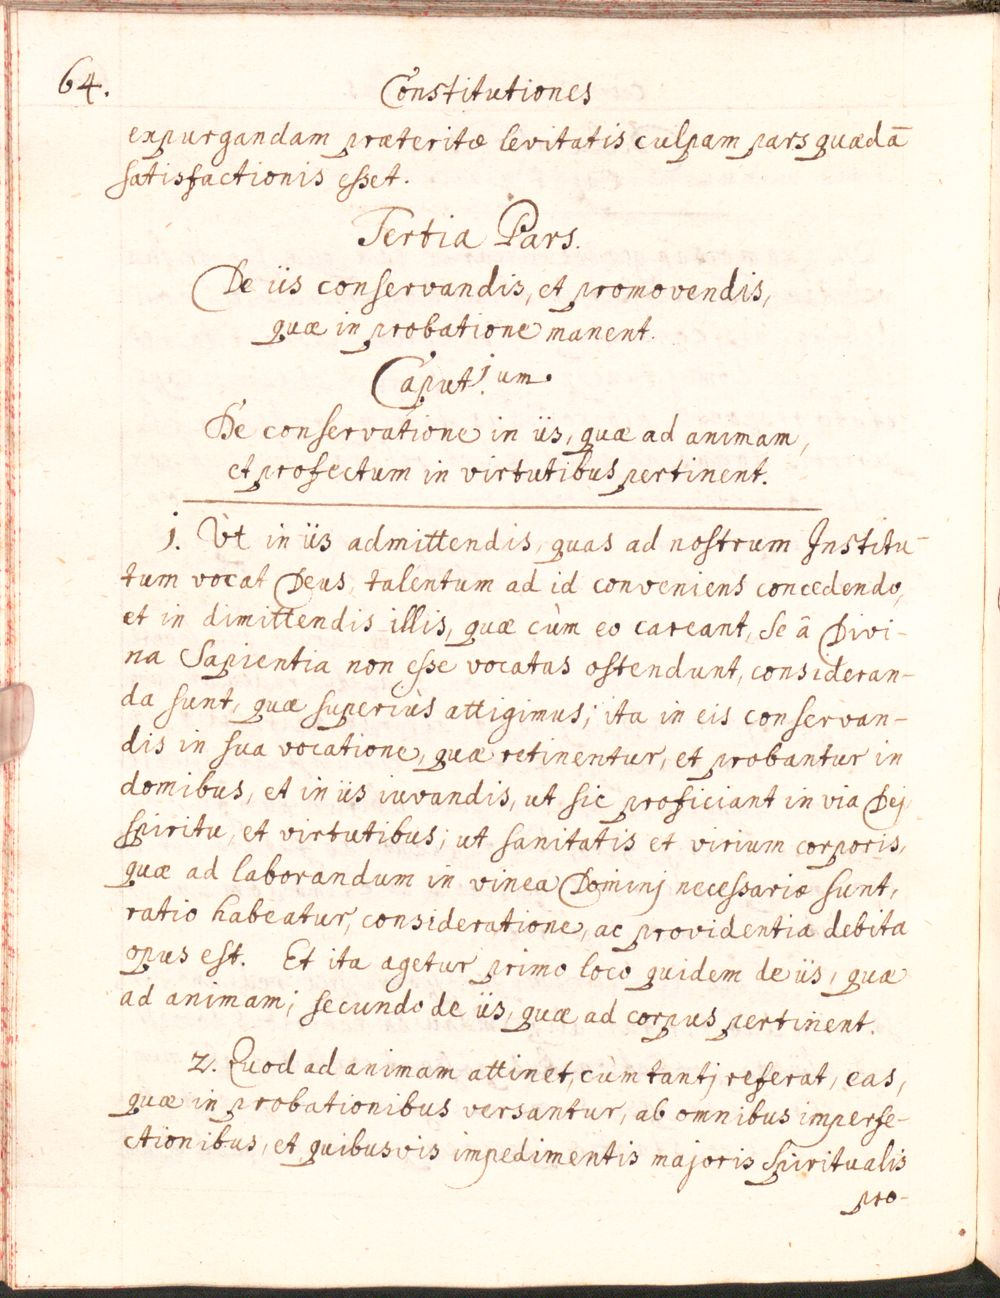 64.
Constitutiones
expurgandam præteritæ levitatis culpam pars quædā
satisfactionis esset.
Tertia Pars.
De iis conservandis, et promovendis,
quæ in probatione manent.
Caput 1.um
De conservatione in iis, quæ ad animam,
et profectum in virtutibus pertinent.
1. Ut in iis admittendis, quas ad nostrum Institu-
tum vocat Deus, talentum ad id conveniens concedendo,
et in dimittendis illis, quæ cùm eo careant, se â Divi-
na Sapientia non esse vocatas ostendunt, consideran-
da sunt, quæ superiùs attigimus; ita in eis conservan-
dis in sua vocatione, quæ retinentur, et probantur in
domibus, et in iis iuvandis, ut sic proficiant in via Dej,
spiritu, et virtutibus; ut sanitatis et virium corporis,
quæ ad laborandum in vinea Dominj necessariæ sunt,
ratio habeatur, consideratione, ac providentia debita
opus est. Et ita agetur primo loco quidem de iis, quæ
ad animam; secundo de iis, quæ ad corpus pertinent.
2. Quod ad animam attinet, cùm tantj referat, eas,
quæ in probationibus versantur, ab omnibus imperfe-
ctionibus, et quibusvis impedimentis majoris spiritualis
pro-